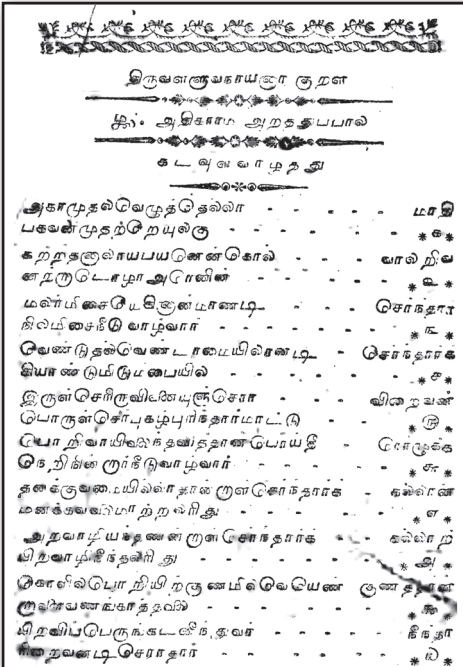 திருவளளுவநாயனார குறள
அதிகாரம அறததுபபால
கடவுளவாழதது
அகரமுதலவெழுத்தெல்லா - - - - - மாதி
பகவன்முதற்றேயுலகு - - - - - * க *
கற்றதனாலாயபயனென்கொல் - - - - வாலறிவ
னற்றாடொழாஅரெனின் - - - - * உ *
மலர்மிசையேகினான்மாணடி - - - சேர்ந்தார்
நிலமிசைநீடுவாழ்வார் - - - - * ௩ *
வேண்டுதல்வேண்டாமையிலானடி - சேர்ந்தார்க
கியாண்டுமிடும்பையில - - - - * ௪ *
இருள்சேரிருவினையுஞ்சேரா - - - விறைவன்
பொருள்சேர்புகழ்புரிந்தார்மாட்டு - - * ௫ *
பொறிவாயிலைந்தவித்தான்பொய்தீ - ரொழுக்க
நெறிநின்றார்நீடுவாழ்வார் - - - * ௬ *
தனக்குவமையில்லாதான்றாள்சேர்ந்தார்க - கல்லான்
மனக்கவலைமாற்றலரிது - - - - * எ *
அறவாழியந்தணன்றாள்சேர்ந்தார்க - கல்லாற்
பிறவாழிநீந்தலரிது - - - - * அ *
கோளில்பொறியிற்குணமிலவேயெண் குணத்தான்
றாளைவணங்காத்தலை - - - - * ௯ *
பிறவிப்பெருங்கடனீந்துவர் - - - நீந்தா
ரிறைவனடிசேராதார் - - - - * ௰ *